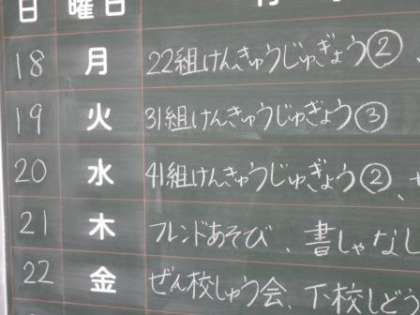 日 曜日
18 月 22組けんきゅうじゅぎょう②、
19 火 31組けんきゅうじゅぎょう③
20 水 41組けんきゅうじゅぎょう②、
21 木 フレンドあそび、書しゃなし
22 金 ぜん校しゅう会、下校しどう